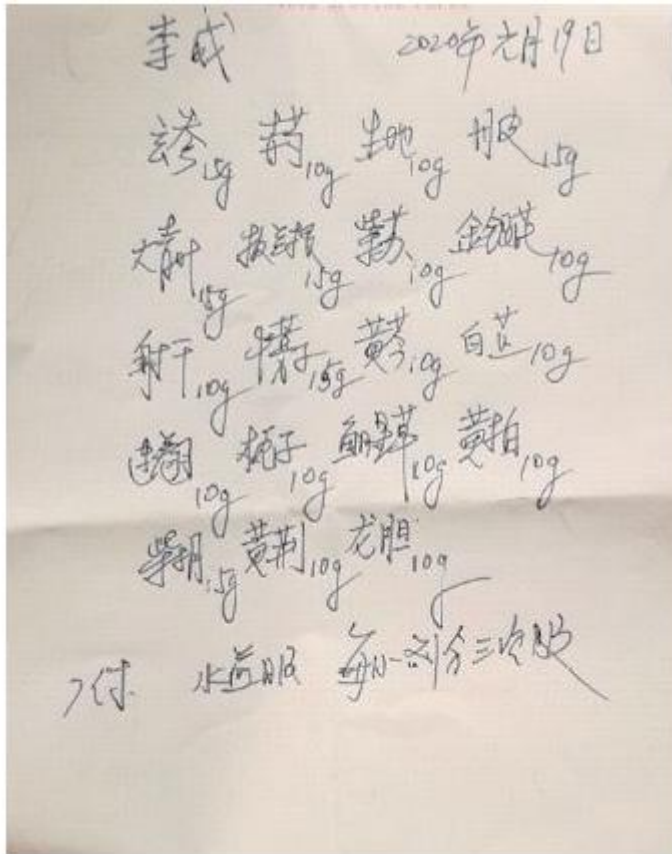 李威 2020年元月19日
玄参15g 芍药10g 生地10g 丹皮15g
大青叶15g 板兰根15g 紫苏10g 金银花10g
射干10g 牛蒡子15g 黄芩10g 白芷10g
连翘10g 栀子10g 鱼腥草10g 黄柏10g
柴胡15g 黄荆10g 龙胆10g
7付 水煎服 每日一剂分三次服